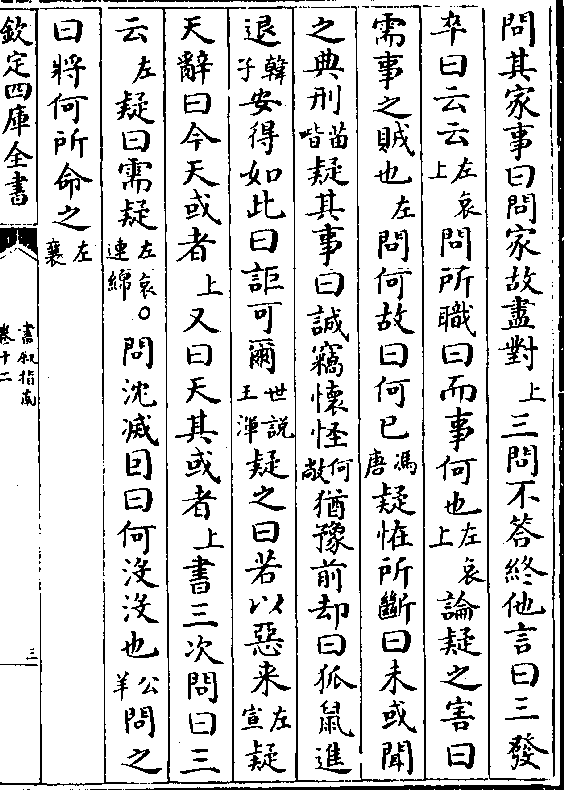 問其家事曰問家故盡對上三問不答終他言曰三發
卒曰云云左哀上問所職曰而事何也左哀上論疑之害曰
需事之賊也左問何故曰何已馮唐疑怪所斷曰未或聞
之典刑苗喈疑其事曰誠竊懷怪何敞猶豫前却曰狐鼠進
退韓子安得如此曰詎可爾世説王渾疑之曰若以惡来左宣疑
天辭曰今天或者上又曰天其或者上書三次問曰三
云左疑曰需疑左哀連綿○問沈滅因曰何沒沒也公羊問之
曰將何所命之左襄
欽定四庫全書
書叙指南
卷十二
三